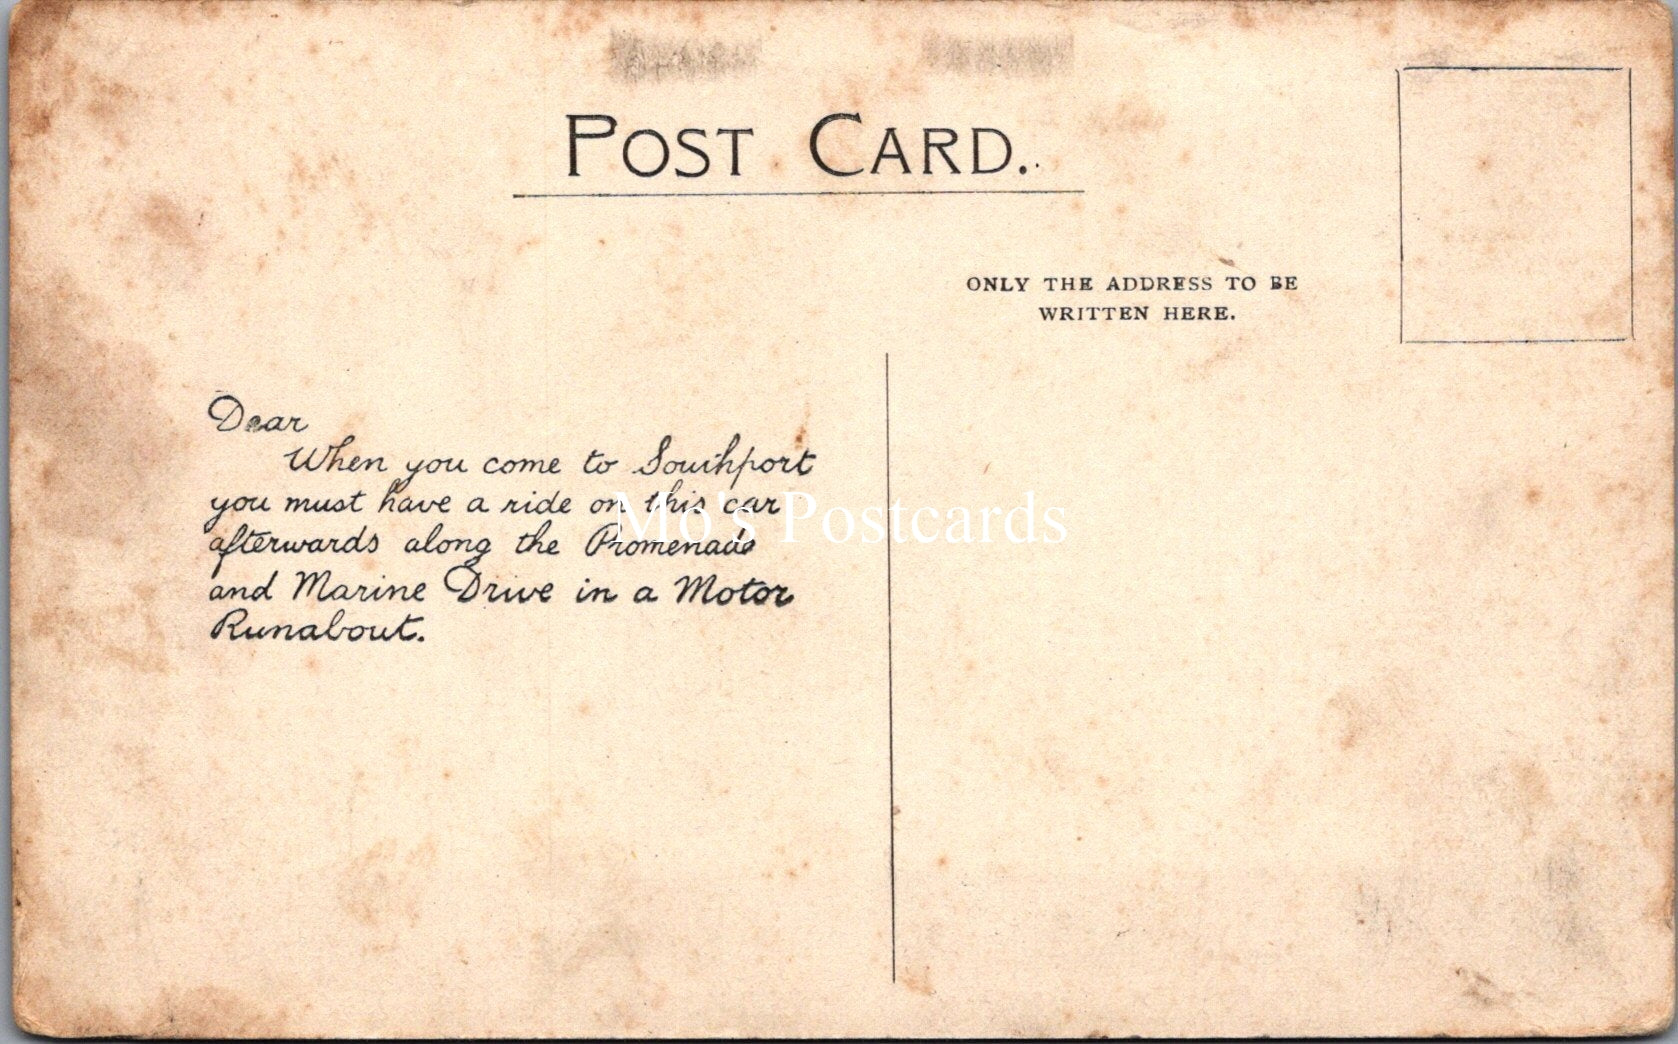 POST CARD.
ONLY THE ADDRESS TO BE
WRITTEN HERE.
Dear
When you come to Southport
you must have a ride on this car
afterwards along the Promenade
and Marine Drive in a Motor
Runabout.
Mo's Postcards